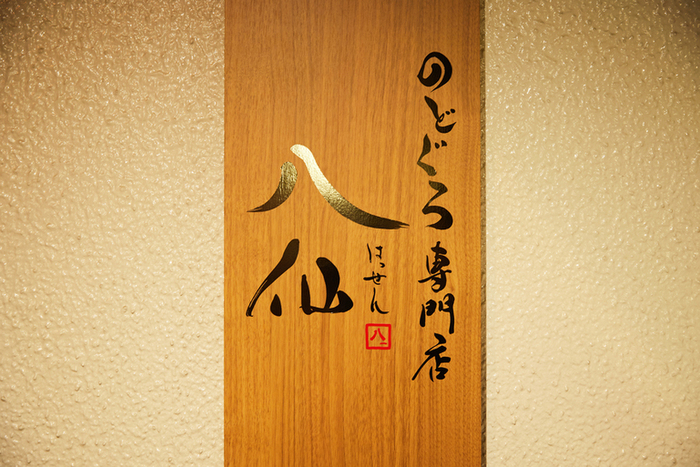 のどぐろ専門店
八仙
はっせん
八仙